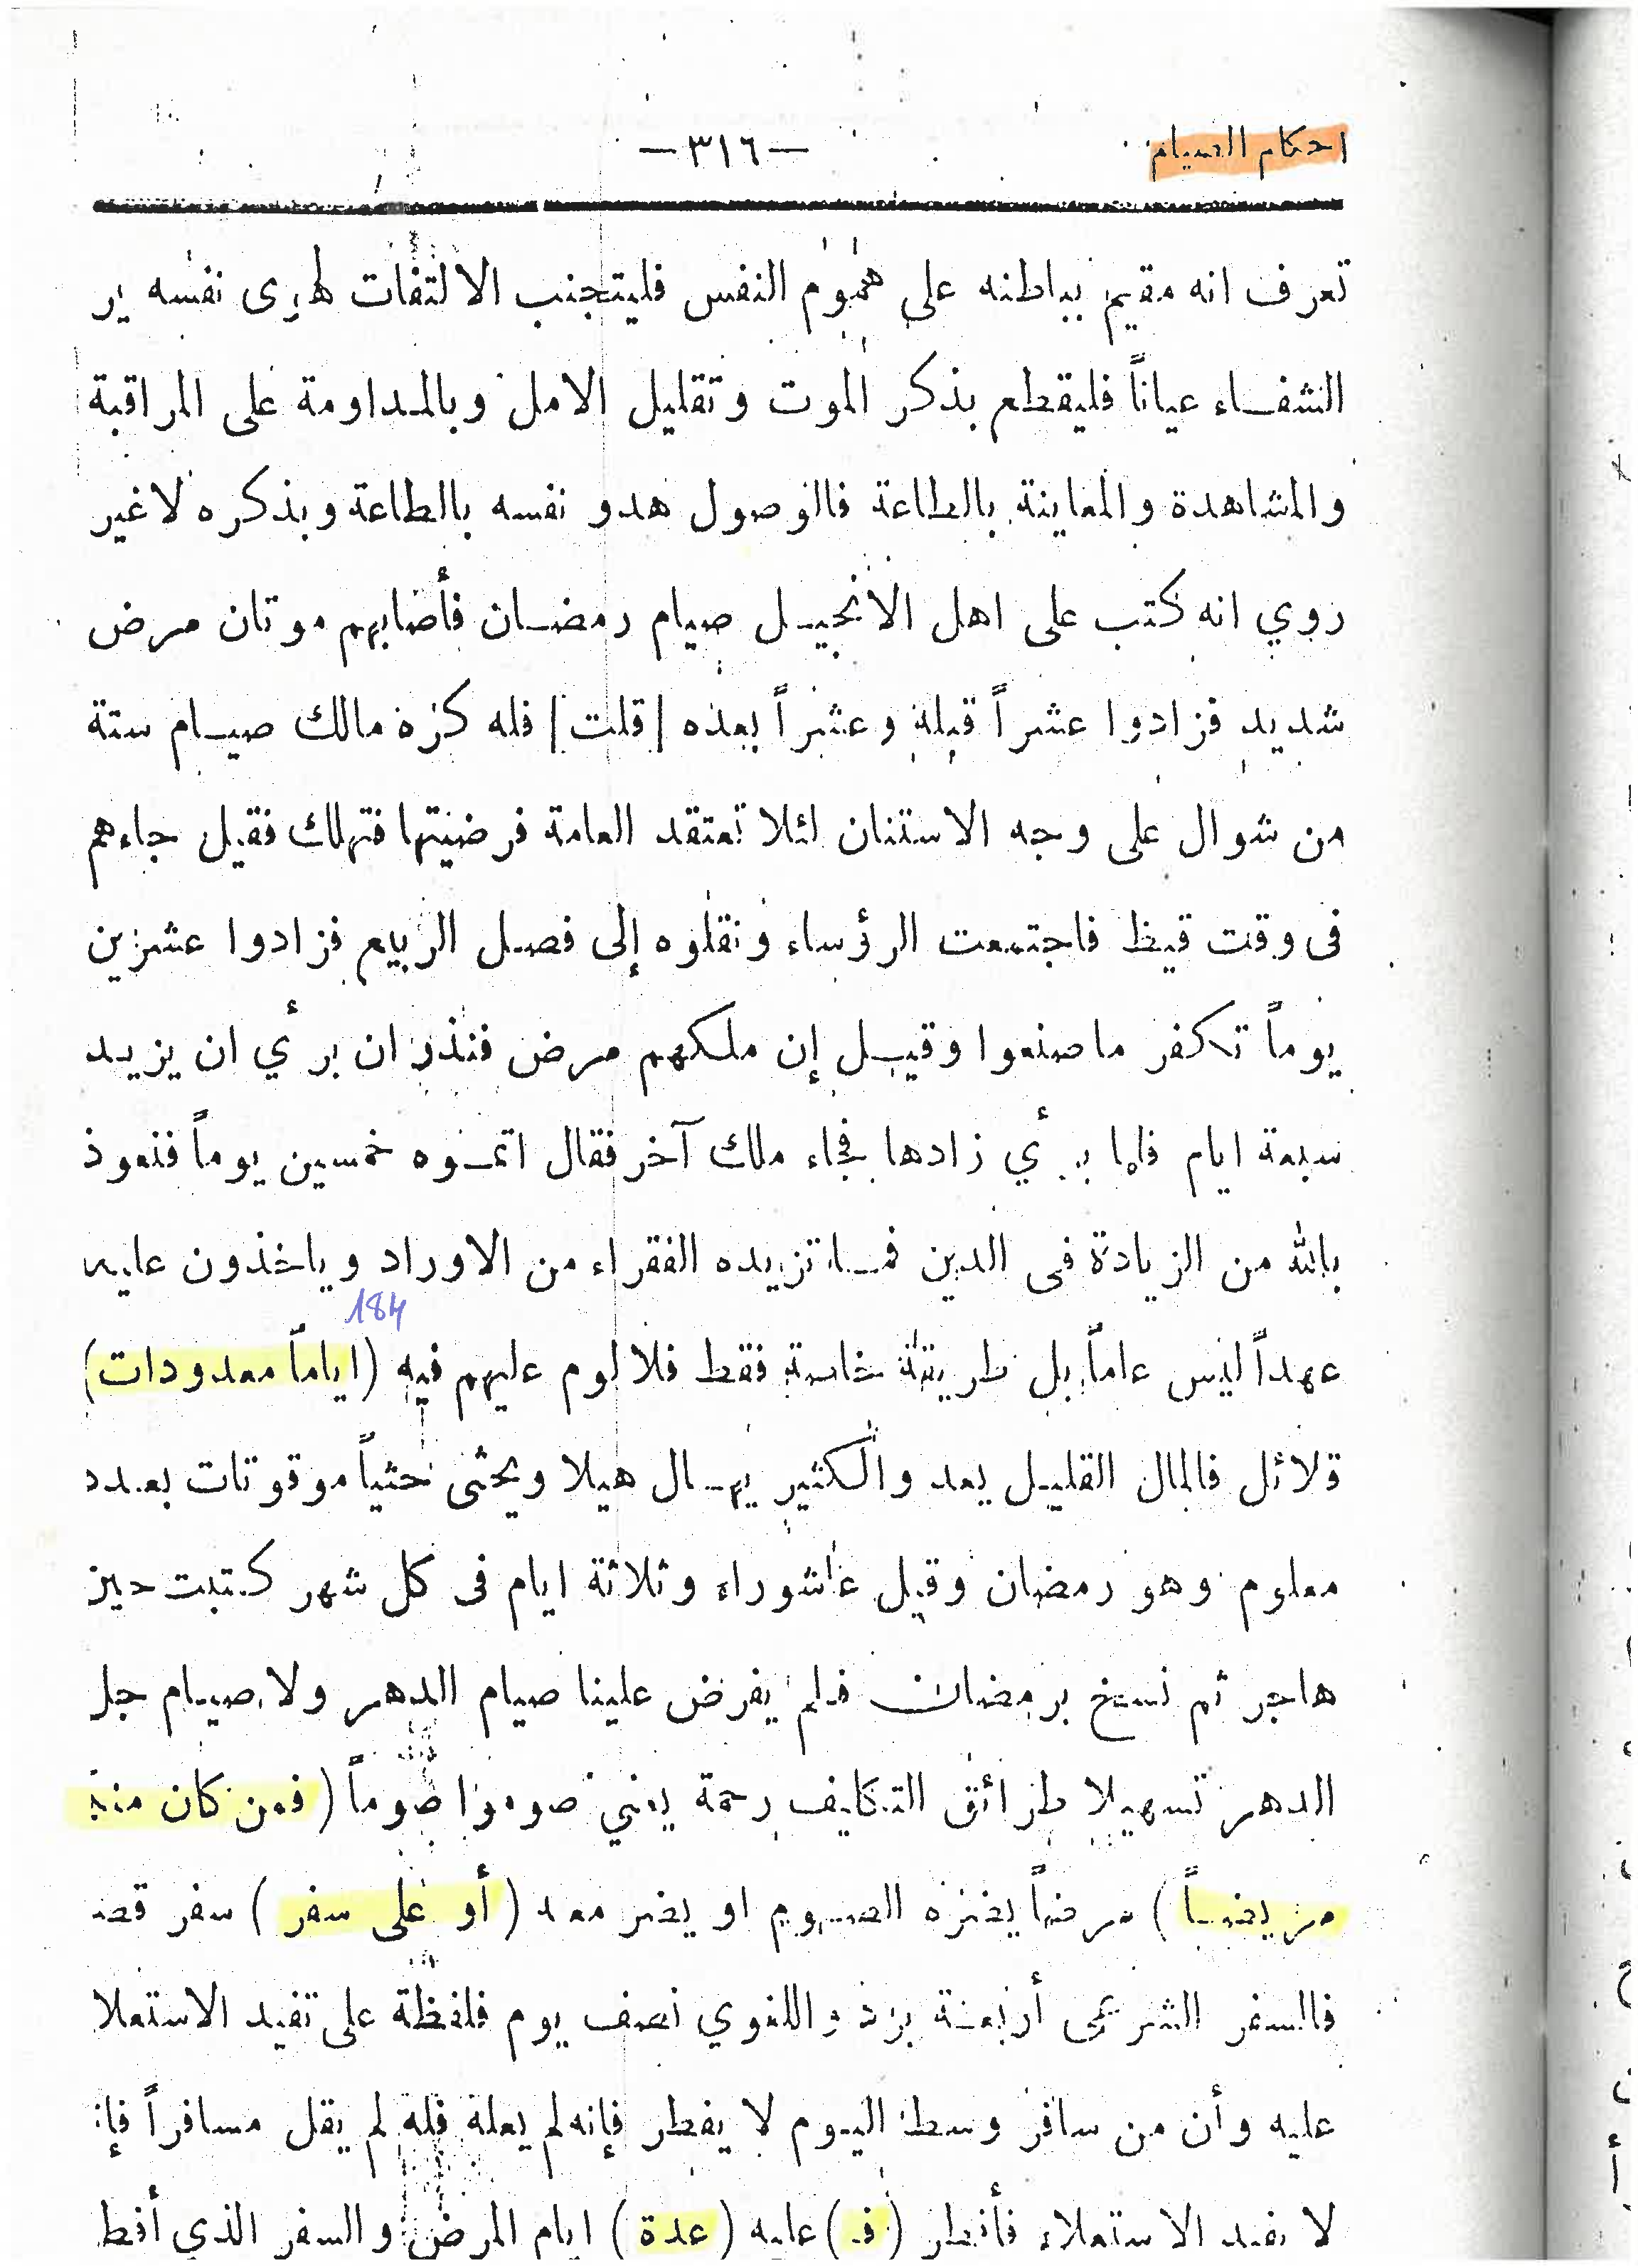 احكام الصيام
—٣١٦—
تعرف انه مقيم بباطنه على هموم النفس فليتجنب الالتفات لهوى نفسه ير
الشفاء عياناً فليقطع بذكر الموت وتقليل الامل وبالمداومة على المراقبة
والمشاهدة والمعاينة بالطاعة فالوصول هدو نفسه بالطاعة وبذكره لاغير
روي انه كتب على اهل الانجيل صيام رمضان فأصابهم موتان مرض
شديد فزادوا عشراً قبله وعشراً بعده [قلت] فله كره مالك صيام ستة
من شوال على وجه الاستنان لئلا تعتقد العامة فرضيتها فتهلك فقيل جاءهم
فى وقت قيظ فاجتمعت الرؤساء ونقلوه إلى فصل الربيع فزادوا عشرين
يوماً تكفر ما صنعوا وقيل إن ملكهم مرض فنذر ان برأي ان يزيد
سبعة ايام فلما برأي زادها فجاء ملك آخر فقال اتموه خمسين يوماً فنعوذ
بالله من الزيادة فى الدين فما تزيده الفقراء من الاوراد وياخذون عليه
184
عهداً ليس عاماً بل طريقة خاصة فقط فلا لوم عليهم فيه (اياماً معدودات)
قلائل فالمال القليل يعد والكثير يهال هيلا ويحثى حثياً موقوتات بعدد
معلوم وهو رمضان وقيل عاشوراء وثلاثة ايام فى كل شهر كتبت حين
هاجر ثم نسخ برمضان فلم يفرض علينا صيام الدهر ولا صيام جل
الدهر تسهيلا طرائق التكليف رحمة يعني صوموا صوماً (فمن كان منكم
مريضاً) مرضاً يضره الصوم او يضر معه (أو على سفر) سفر قصر
فالسفر الشرعى أربعة برد واللغوي نصف يوم فلفظة على تفيد الاستعلا
عليه وأن من سافر وسط اليوم لا يفطر فإنه لم يعله فله لم يقل مسافراً فإنه
لا يفيد الاستعلاء فأفطر (فـ) عليه (عدة) ايام المرض والسفر الذي أفطر